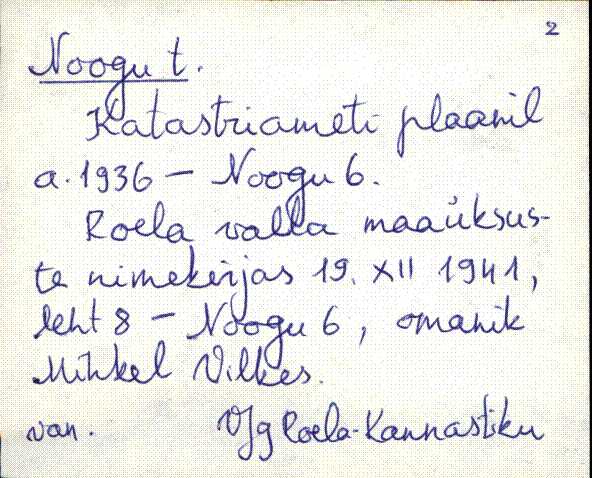 2
Noogu t.
Katastriameti plaanil
a. 1936 — Noogu 6.
Roela valla maaüksus-
te nimekirjas 19. XII 1941,
leht 8 — Noogu 6, omanik
Mihkel Vilkes.
van. VJg Roela-Kannastiku